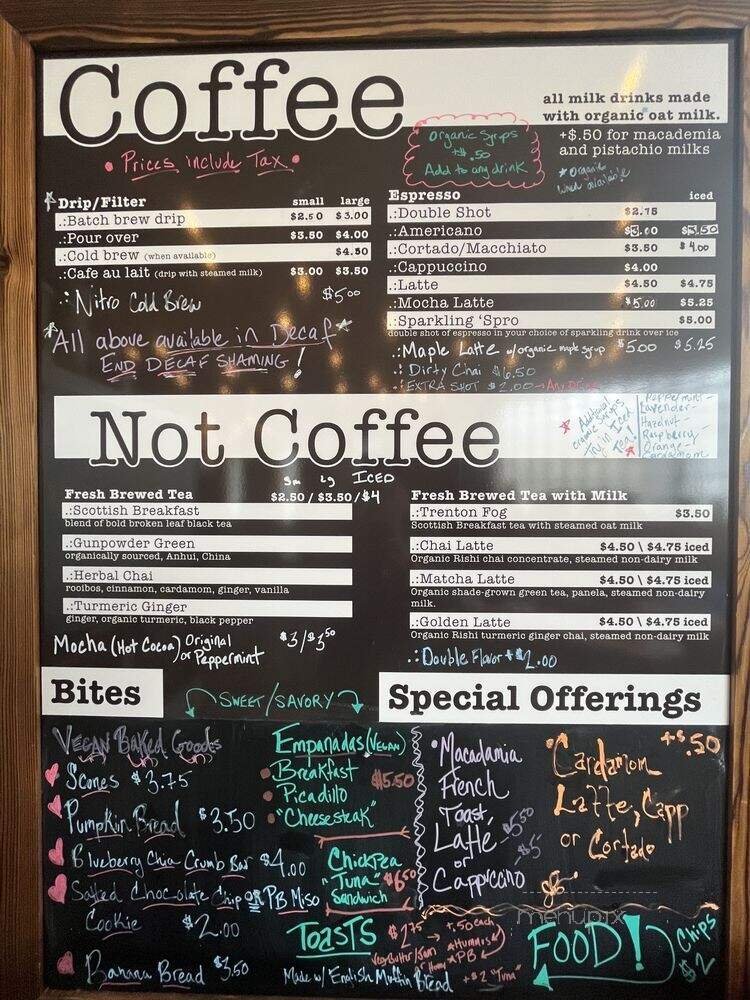 Coffee
all milk drinks made
with organic oat milk.
+$.50 for macademia
and pistachio milks
* organic
when available
Organic Syrups
+$.50
Add to any drink
• Prices include Tax •
Drip/Filter small large
.:Batch brew drip $2.50 $3.00
.:Pour over $3.50 $4.00
.:Cold brew (when available) $4.50
.:Cafe au lait (drip with steamed milk) $3.00 $3.50
.:Nitro Cold Brew $5.00
*All above available in Decaf*
END DECAF SHAMING!
Espresso iced
.:Double Shot $2.75
.:Americano $3.00 $3.50
.:Cortado/Macchiato $3.50 $4.00
.:Cappuccino $4.00
.:Latte $4.50 $4.75
.:Mocha Latte $5.00 $5.25
.:Sparkling 'Spro $5.00
double shot of espresso in your choice of sparkling drink over ice
.:Maple Latte w/organic maple syrup $5.00 $5.25
.:Dirty Chai $6.50
.:EXTRA SHOT $2.00 → Any Drink
Not Coffee
* Additional
organic syrups
Try in Iced
Tea! *
Peppermint
Lavender
Hazelnut
Raspberry
Orange
Cardamom
Sm Lg ICED
Fresh Brewed Tea $2.50 / $3.50 / $4
.:Scottish Breakfast
blend of bold broken leaf black tea
.:Gunpowder Green
organically sourced, Anhui, China
.:Herbal Chai
rooibos, cinnamon, cardamom, ginger, vanilla
.:Turmeric Ginger
ginger, organic turmeric, black pepper
Mocha (Hot Cocoa) Original or Peppermint $3/$3.50
Fresh Brewed Tea with Milk
.:Trenton Fog $3.50
Scottish Breakfast tea with steamed oat milk
.:Chai Latte $4.50 \ $4.75 iced
Organic Rishi chai concentrate, steamed non-dairy milk
.:Matcha Latte $4.50 \ $4.75 iced
Organic shade-grown green tea, panela, steamed non-dairy
milk.
.:Golden Latte $4.50 \ $4.75 iced
Organic Rishi turmeric ginger chai, steamed non-dairy milk
.:Double Flavor + $1.00
Bites
SWEET/SAVORY
Vegan Baked Goods
Scones $3.75
Pumpkin Bread $3.50
Blueberry Chia Crumb Bar $4.00
Salted Chocolate Chip OR PB Miso
Cookie $2.00
Banana Bread $3.50
Empanadas (Vegan)
• Breakfast
• Picadillo $5.50
• "Cheesesteak"
Chickpea
"Tuna" $6.50
Sandwich
TOASTS $2.75 →
+.50 each
*Hummus
*PB
+$2 "Tuna"
Made w/ English Muffin Bread
Special Offerings
• Macadamia
French
Toast
Latte $5.50
or $5
Cappuccino
+$.50
Cardamom
Latte, Capp
or Cortado
menupix
FOOD!
Chips
$2